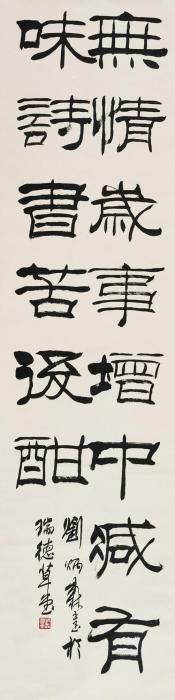 無情歲事增中減有
味詩書苦後酣
劉炳森書於
瑞德草堂